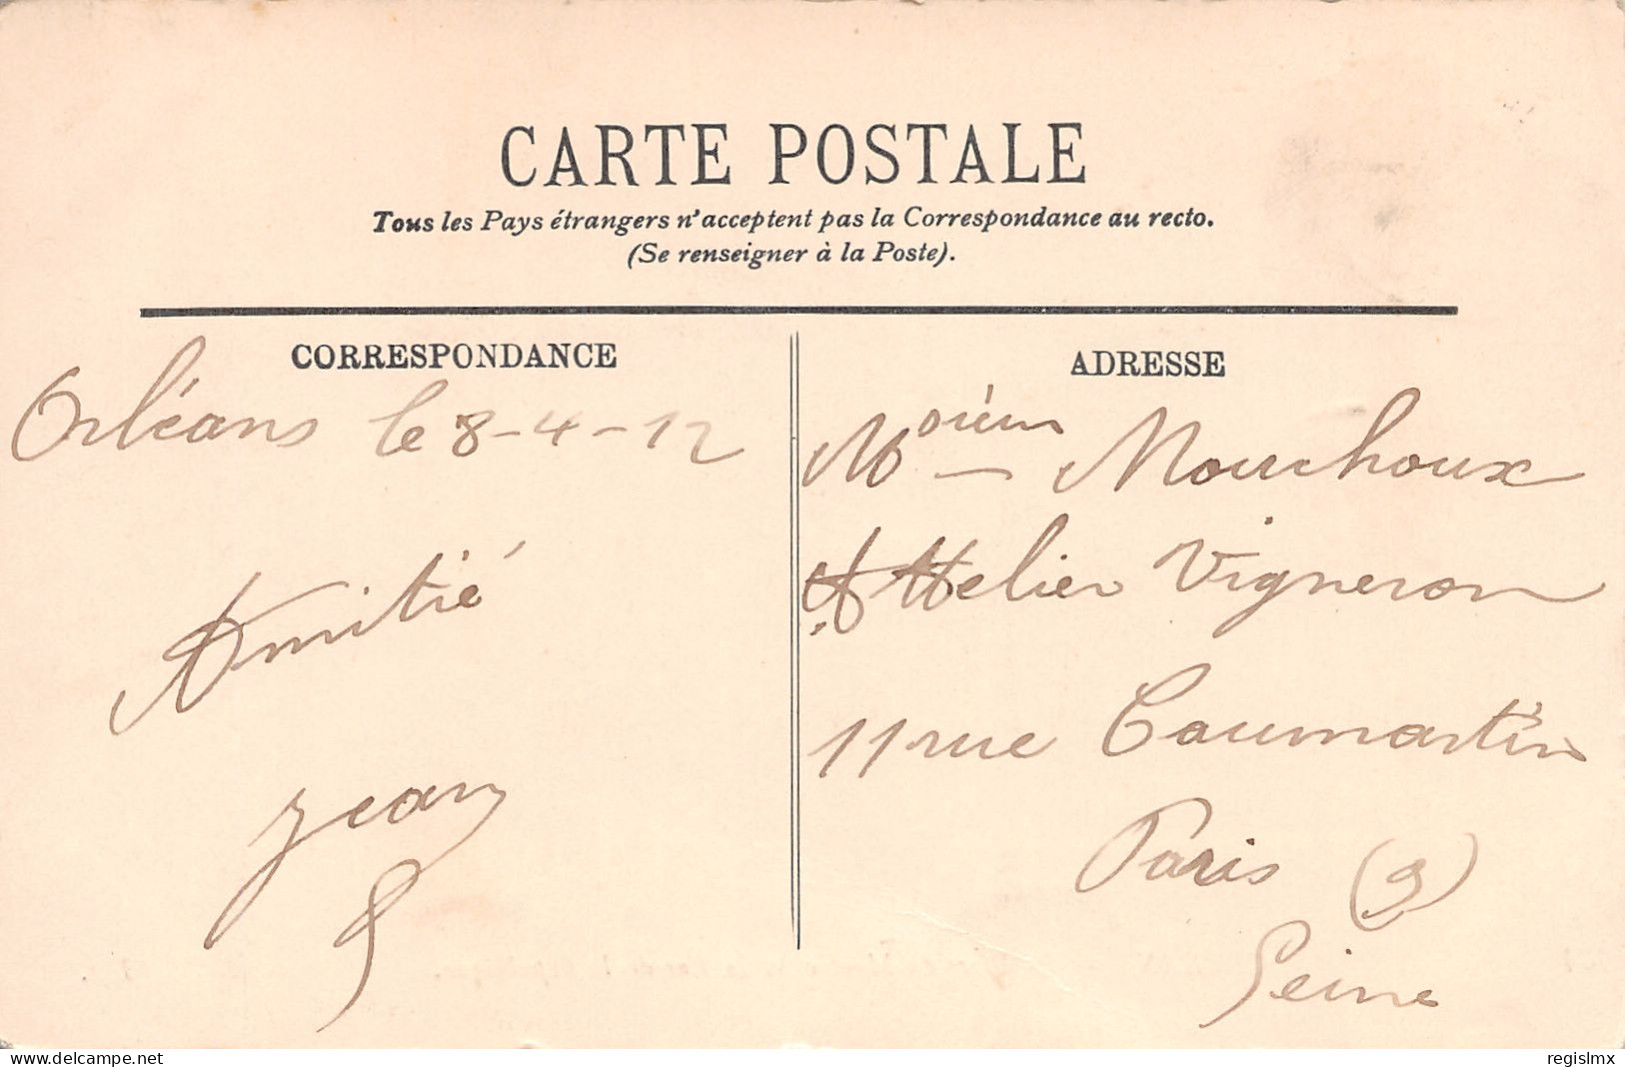 CARTE POSTALE
Tous les Pays étrangers n'acceptent pas la Correspondance au recto.
(Se renseigner à la Poste).
CORRESPONDANCE
ADRESSE
Orléans le 8-4-12
Amitié
Jean
Mourchoux
Attelier Vigneron
11 rue Caumartin
Paris (9)
Seine
www.delcampe.net
regislmx